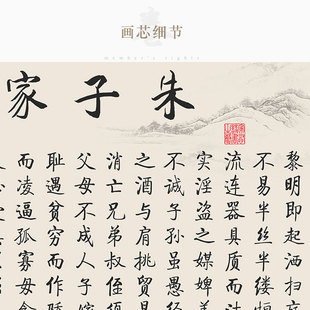 画芯细节
member's rights
朱子家
黎明即起洒扫庭
不易半丝半缕恒
流连器具质而洁
实淫盗之媒婢美
不诚子孙虽愚经
之酒与肩挑贸易
消亡兄弟叔侄须
父母不成人子嫁
耻遇贫穷而作骄
而凌逼孤寡毋贪